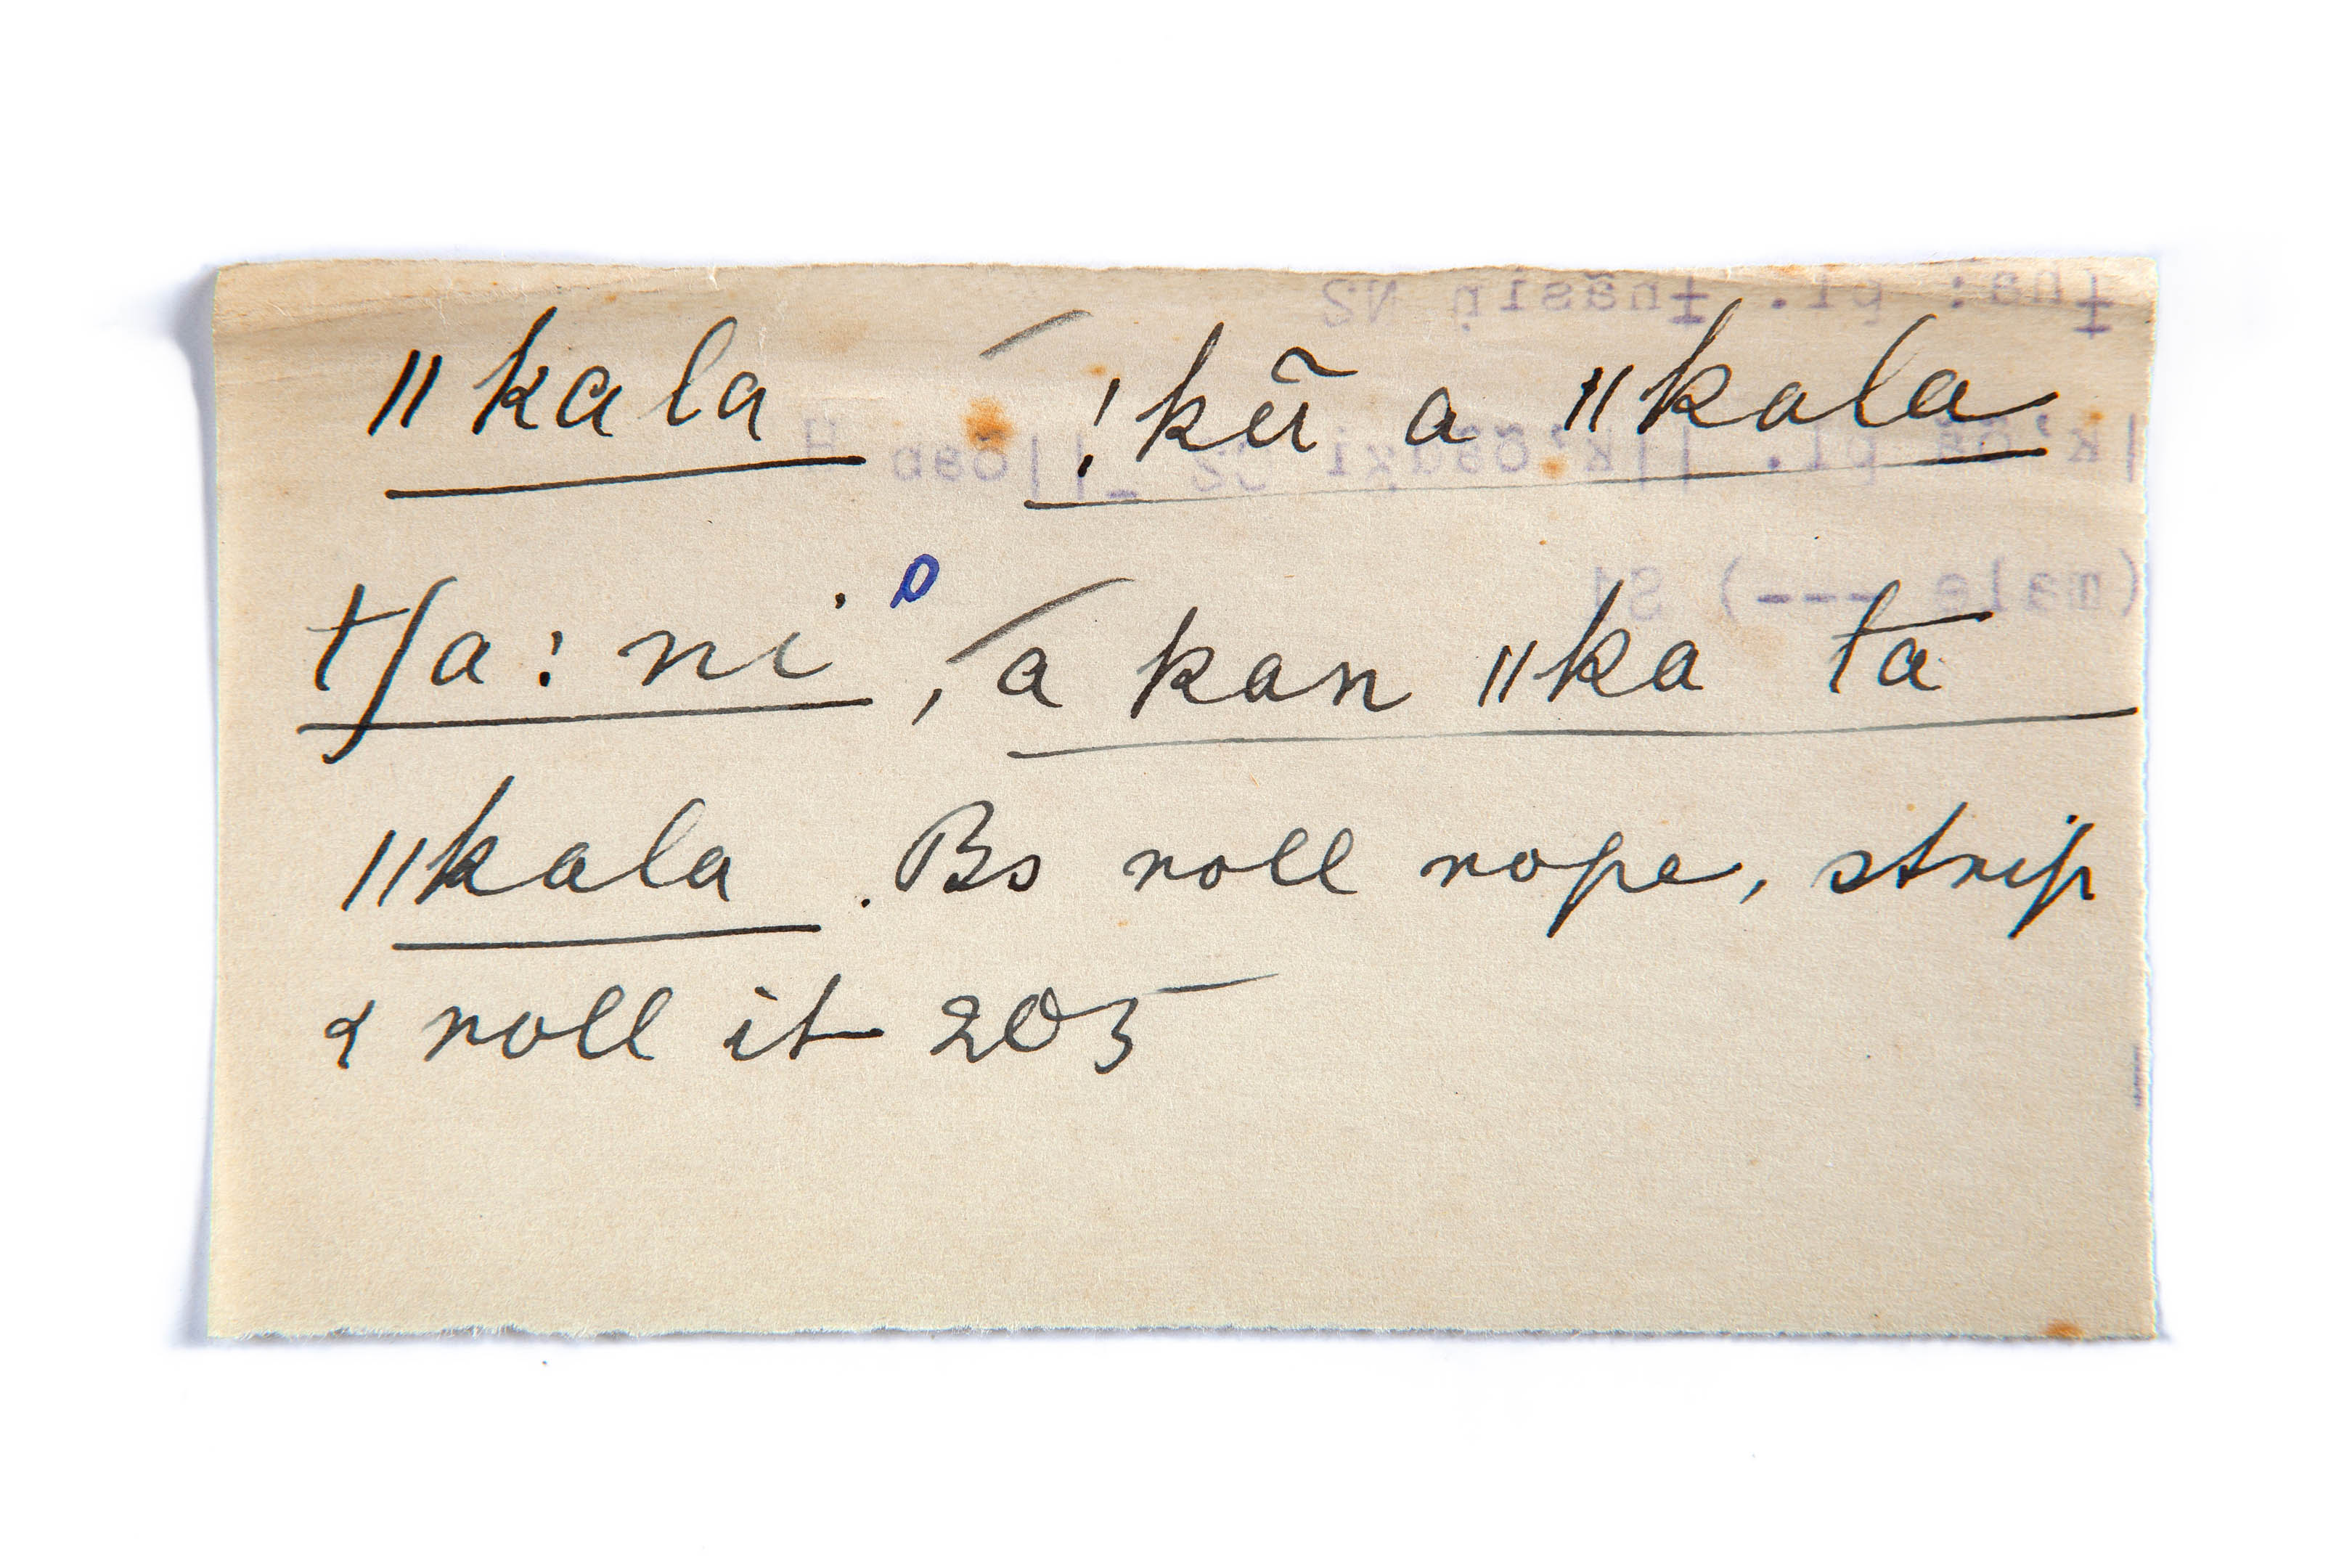 ǁkala !kũ a ǁkala
tʃa: ni, a kan ǁka ta
ǁkala. Bs roll rope, strip
& roll it 205